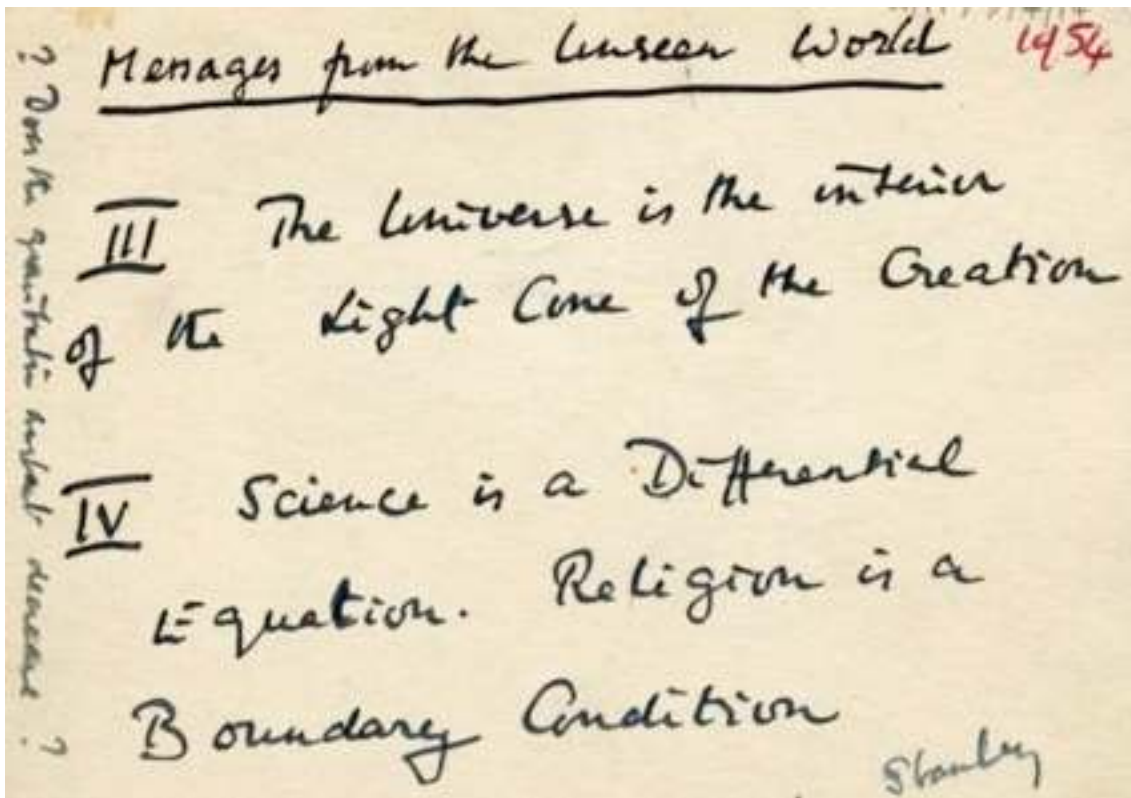 Messages from the Unseen World
1954
III The Universe is the interior
of the Light Cone of the Creation
IV Science is a Differential
Equation. Religion is a
Boundary Condition
Stanley
? Does the gravitation constant decrease ?